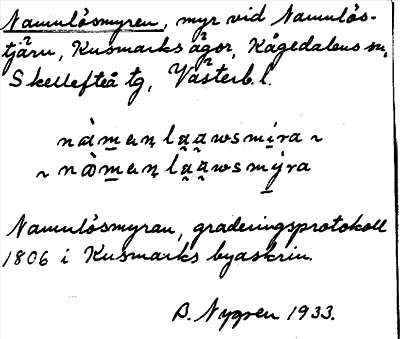 Namnlösmyren, myr vid Namnlös-
tjärn, Kusmarks ägor, Kågedalens sn,
Skellefteå tg, Västerb. l.
Namnlösmyran, graderingsprotokoll
1806 i Kusmarks byaskrin.
B. Nygren 1933.